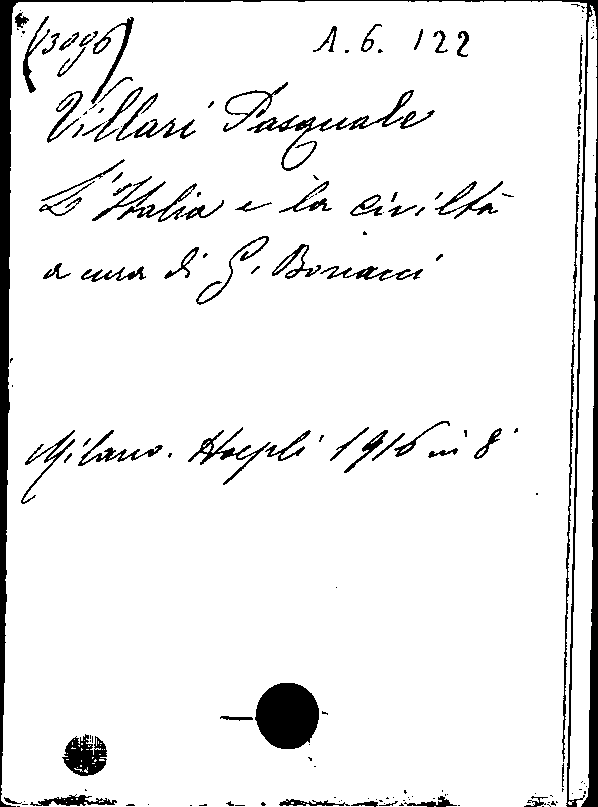 (13096)
A. 6. 122
Villari Pasquale
L'Italia e la civiltà
a cura di G. Bonacci
Milano. Hoepli 1916 in 8°